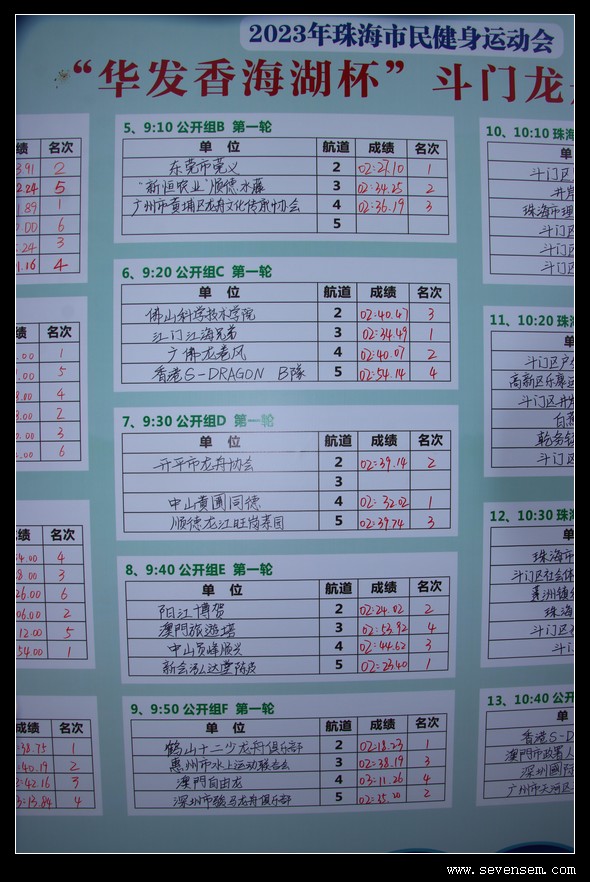 2023年珠海市民健身运动会
“华发香海湖杯”斗门龙
绩 名次
3.91 2
2.24 5
1.89 1
0.00 6
5.24 3
1.16 4
绩 名次
.00 1
.00 5
.00 4
.00 2
.00 3
.00 6
成绩 名次
54.00 4
8.00 3
26.00 6
06.00 2
12.00 5
54.00 1
成绩 名次
:38.75 1
:40.19 2
2:42.16 3
3:13.84 4
5、9:10 公开组B 第一轮
单 位 航道 成绩 名次
东莞市莞义 2 02:27.10 1
"新恒农业"顺德水藤 3 02:34.25 2
广州市黄埔区龙舟文化传承协会 4 02:36.19 3
5
6、9:20 公开组C 第一轮
单 位 航道 成绩 名次
佛山科学技术学院 2 02:40.47 3
江门江海兄弟 3 02:34.49 1
广佛龙卷风 4 02:40.07 2
香港S-DRAGON B隊 5 02:54.14 4
7、9:30 公开组D 第一轮
单 位 航道 成绩 名次
开平市龙舟协会 2 02:39.14 2
3
中山黄圃同德 4 02:32.02 1
顺德龙江旺岗菜园 5 02:39.74 3
8、9:40 公开组E 第一轮
单 位 航道 成绩 名次
阳江博贺 2 02:24.02 2
澳門旅遊塔 3 02:53.92 4
中山 4 02:44.62 3
新会 5 02:23.40 1
9、9:50 公开组F 第一轮
单 位 航道 成绩 名次
鹤山十二少龙舟俱乐部 2 02:18.23 1
惠州市水上运动联合会 3 02:38.19 3
澳門自由龙 4 03:11.26 4
深圳市骏马龙舟俱乐部 5 02:35.20 2
10、10:10 珠海
单
斗门区
井岸
珠海市理
斗门区
斗门区
斗门区
11、10:20 珠海
单
斗门区户
高新区乐康运
斗门区井岸
白蕉
乾务镇
斗门区
12、10:30 珠海
单
珠海市
斗门区社会体
莲洲镇
珠海
斗门区
斗门区
13、10:40 公开
单
香港S-D
澳門市政署人
深圳國际
广州市天河区
www.sevensem.com